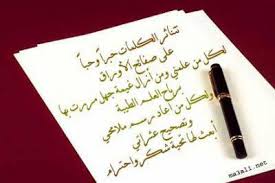 تتناثر الكلمات حبراً وحباً
على صفائح الأوراق
لكل من علمني ومن أزال غيمة جهل مررت بها
برياح العلم الطيبة
ولكل من أعاد رسم ملامحي
وتصحيح عثراتي
أبعث لها تحية شكر واحترام
majali.net